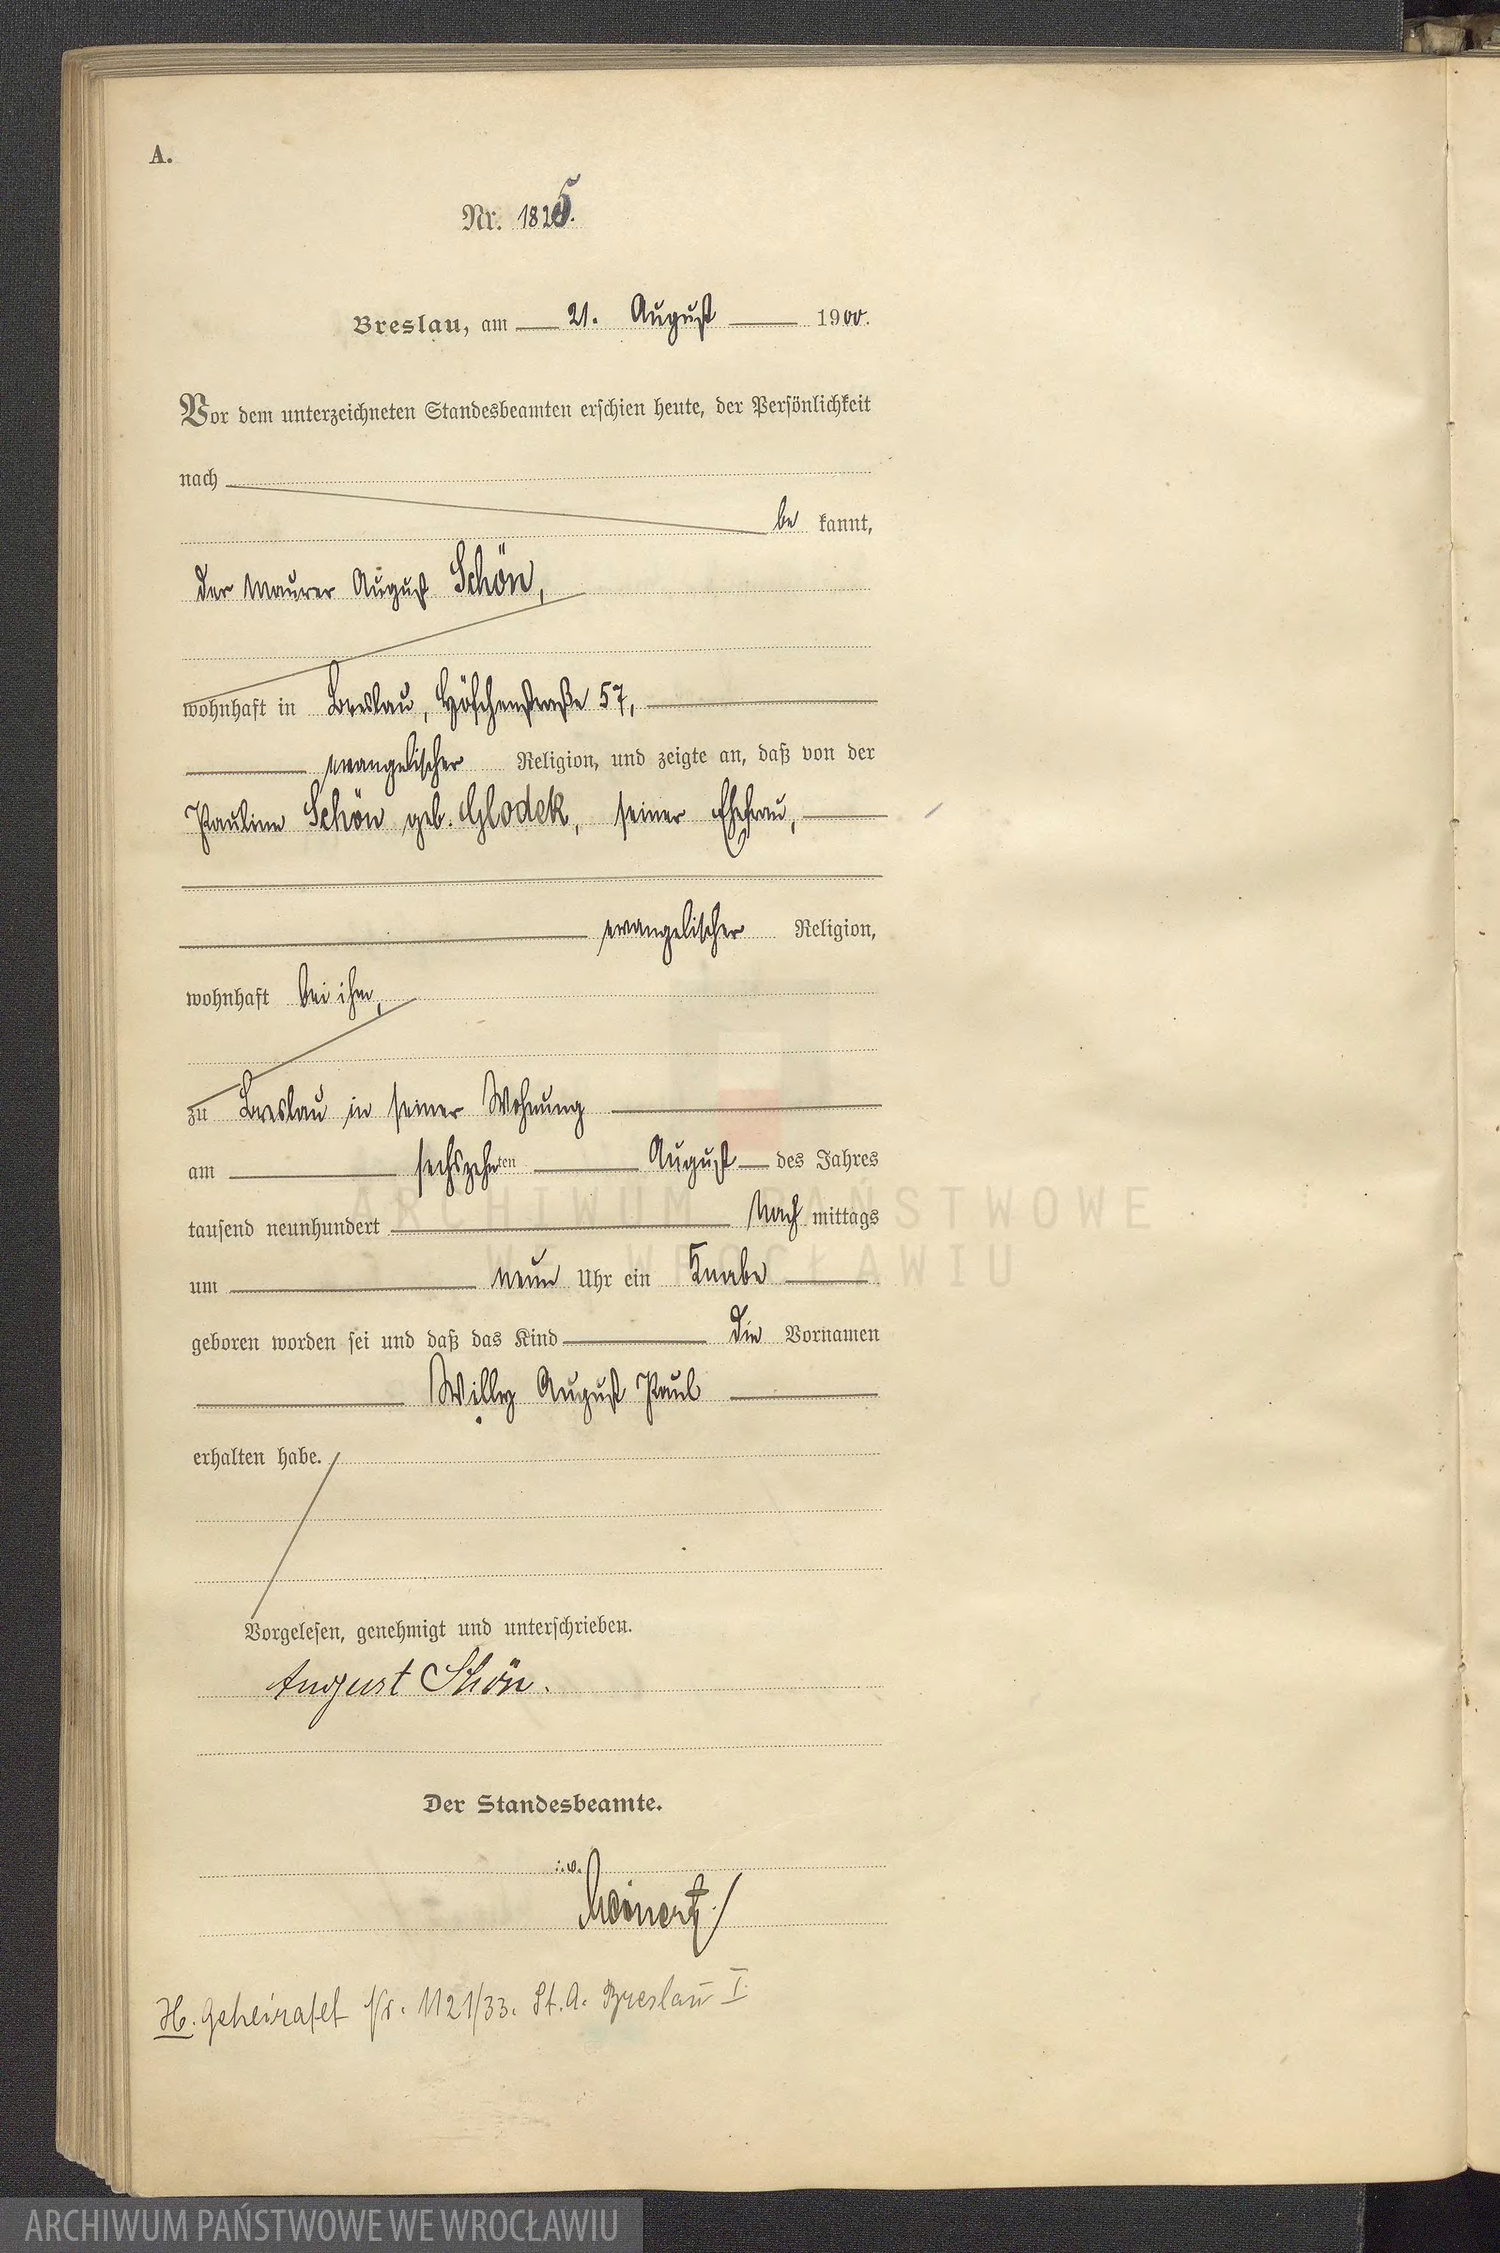 A.
Nr. 1825.
Breslau, am 21. August 1900.
Vor dem unterzeichneten Standesbeamten erschien heute, der Persönlichkeit
nach
be kannt,
der Maurer August Schön,
wohnhaft in Breslau, Höfchenstraße 57,
evangelischer Religion, und zeigte an, daß von der
Pauline Schön geb. Glodek, seiner Ehefrau,
evangelischer Religion,
wohnhaft bei ihm,
zu Breslau in seiner Wohnung
am sechszehnten August des Jahres
tausend neunhundert Nach mittags
um neun Uhr ein Knabe
geboren worden sei und daß das Kind die Vornamen
Willy August Paul
erhalten habe.
Vorgelesen, genehmigt und unterschrieben.
August Schön.
Der Standesbeamte.
i.V.
Meinert
H. Geheiratet Nr. 1121/33. St. A. Breslau I
ARCHIWUM PAŃSTWOWE
WE WROCŁAWIU
ARCHIWUM PAŃSTWOWE WE WROCŁAWIU